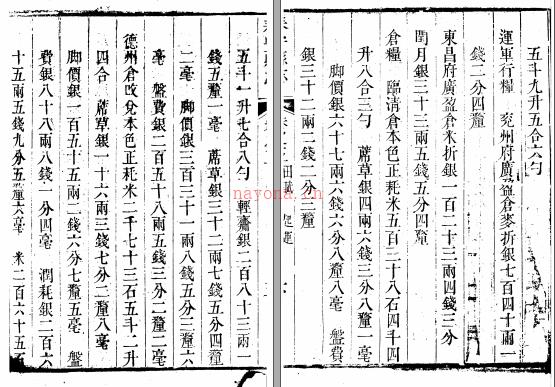 五斗九升五合六勺
運軍行糧　兖州府廣盈倉麥折銀七百四十兩一
錢二分四釐
東昌府廣盈倉米折銀一百二十三兩四錢三分
閏月銀三十三兩五錢五分四釐
倉糧　臨清倉本色正耗米五百二十八石四斗四
升八合三勺　蓆草銀四兩六錢三分八釐一毫
脚價銀六十七兩六錢六分八釐八毫　盤費
銀三十二兩二錢二分二釐
田賦　起運
五斗一升七合八勺　輕齎銀二百八十三兩一
錢五釐一毫　蓆草銀三十二兩七錢五分四釐
二毫　脚價銀三百三十一兩八錢三分三釐六
毫　盤費銀二百五十八兩五錢三分二釐二毫
德州倉改兌本色正耗米二千七十三石五斗二升
四合　蓆草銀一十六兩三錢七分二釐八毫
脚價銀一百五十五兩二錢六分七釐五毫　盤
費銀八十八兩八錢一分四毫　潤耗銀二百六
十五兩五錢九分五釐六毫　米二百六十五石
nayona.cn